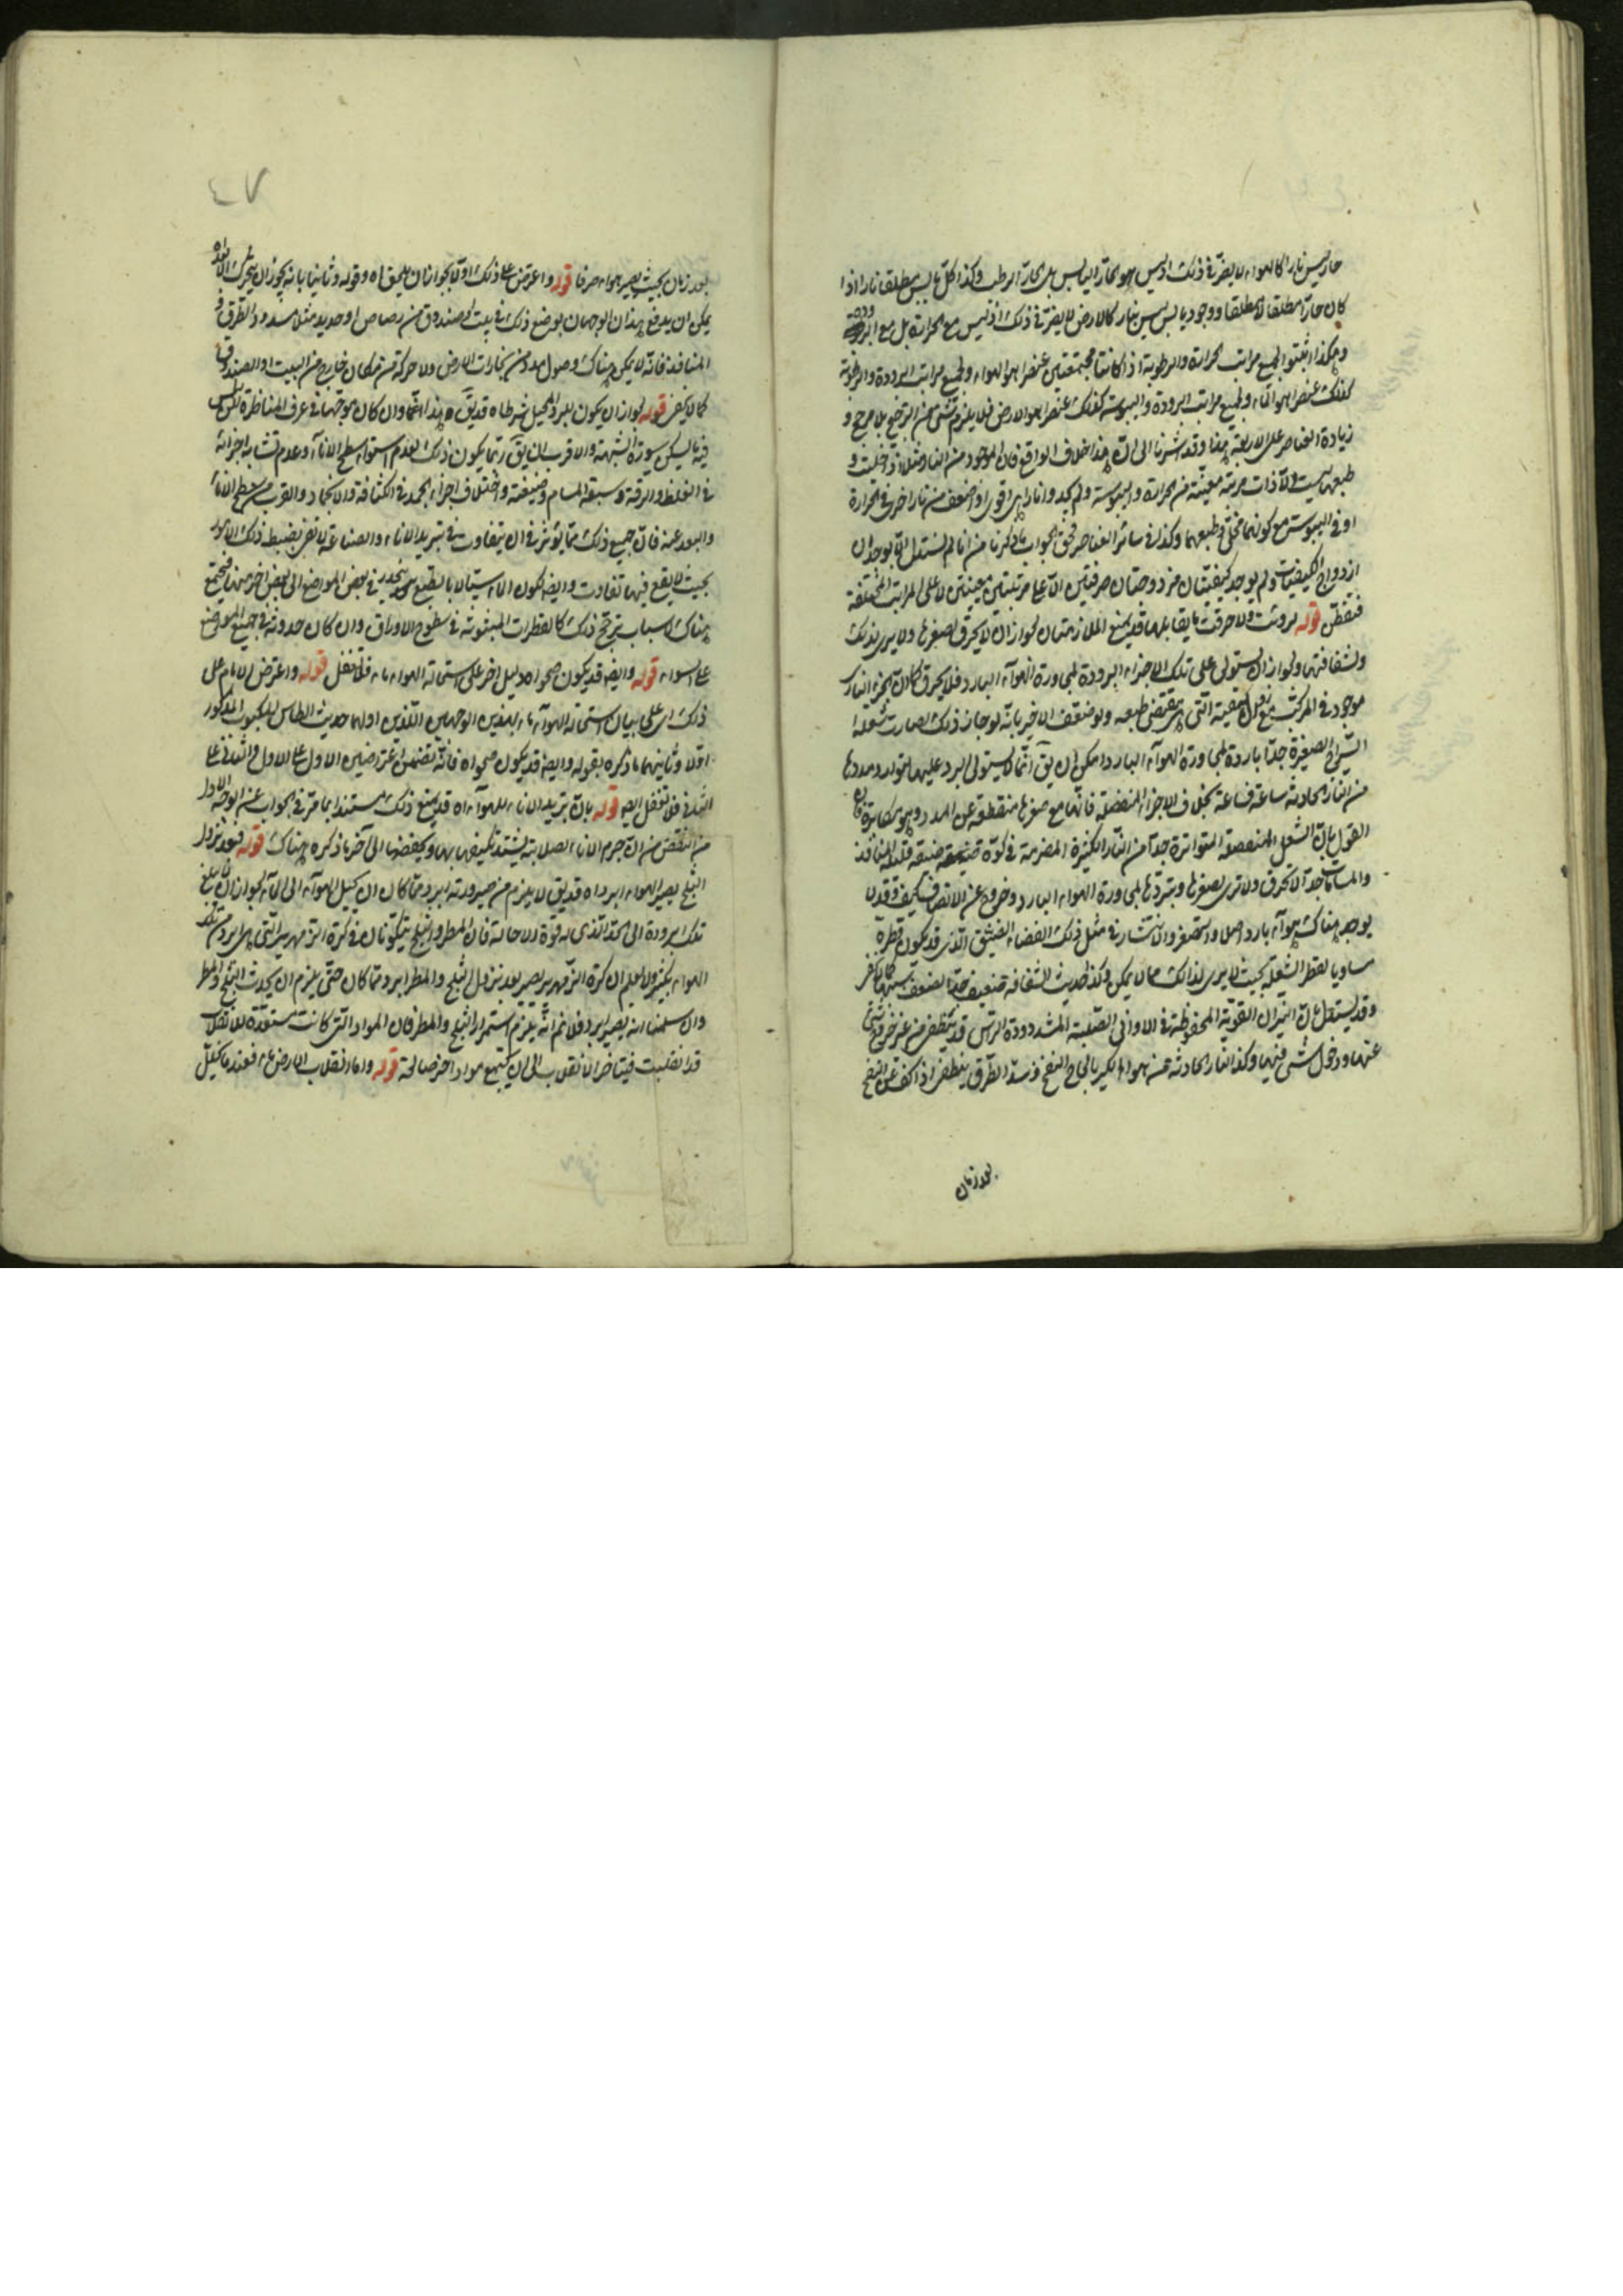 حار ليس نارا كالهواء لا يضر في ذلك اذ ليس هو الحار اليابس بل الحار الرطب وكذا كل يابس مطلقا نارا اذا
كان حارا مطلقا لا مطلقا ووجود يابس ليس بنار كالارض لا يضر في ذلك اذ ليس مع الحرارة بل مع البرودة
وهكذا اثبتوا لجميع مراتب الحرارة والرطوبة اذا كانتا مجتمعتين عنصرا هو الهواء ولجميع مراتب البرودة والرطوبة
كذلك عنصرا هو الماء ولجميع مراتب البرودة واليبوسة كذلك عنصرا هو الارض فلا يلزم شئ من الترجيح بلا مرجح و
زيادة العناصر على الاربعة هذا وقد اشرنا الى ان هذا خلاف الواقع فان الموجود من النار مثلا اذا خليت و
طبعها ليست الا ذات مرتبة معينة من الحرارة واليبوسة ولم نجد نارا هي اقوى او اضعف من نار اخرى في الحرارة
او في اليبوسة مع كونهما مخلى وطبعهما وكذا في سائر العناصر فحق الجواب ما ذكرنا من انا لم نستدل الا بوجدان
ازدواج الكيفيات ولم يوجد كيفيتان مزدوجتان صرفتين الا على مرتبتين معينتين لا على المراتب المختلفة
فتفطن قوله لروئت ولاحرقت ما يقابلها قد يمنع الملازمتان لجواز ان لا يحرق لصغرها ولا يرى لذلك
ولشفافتها ولجواز ان يستولى على تلك الاجزاء البرودة لمجاورة الهواء البارد فلا يحرق كما ان الجزء النارى
موجود في المركب مع زوال الكيفية التى هي مقتضى طبعه وبضعف الاخير بانه لو جاز ذلك لصارت شعلة
السراج الصغيرة جدا باردة لمجاورة الهواء البارد امكن ان يق انما لا يستولى البرد عليها لتوارد مددها
من النار الحادثة ساعة فساعة بخلاف الاجزاء المنفصلة فانها مع صغرها منقطعة عن المدد وهو مكابرة فان
القول بان الشعل المنفصلة المتواترة جدا من النار الكثيرة المضرمة في كوة ضيقة قليلة المنافذ
والمسامات جدا لا تحرق ولا ترى لصغرها وتبردها لمجاورة الهواء البارد وخروج عن الانصاف كيف وقد لا
يوجد هناك هواء بارد اصلا واستصغر والانتشار في مثل ذلك الفضاء الضيق الذى قد يكون قطره
مساويا لقطر الشعلة بحيث لا يرى لذلك مما لا يمكن وكذا حديث الشفافة ضعيف جدا لضعف سببها كما لا يخفى
وقد يستدل بان النيران القوية المحفوظة في الاوانى الصلبة المشدودة الراس قد تنطفئ من غير خروج شئ
عنها ودخول شئ فيها وكذا النار الحادثة من هواء الكير بالحاح النفخ وسد الطرق ينطفئ اذا كف عن النفخ
بعد زمان
٤٧
بعد زمان بحيث يصير هواء صرفا قوله واعترض على ذلك اولا بجواز ان يلحق اه وقوله وثانيا بانه يجوز ان يتحرك الاجزاء
يمكن ان يدفع هذان الوجهان بوضع ذلك في بيت او صندوق من رصاص او حديد مثلا مسدود الطرق و
المنافذ فانه لا يمكن هناك وصول مدد من بخارات الارض ولا حركة من مكان خارج من البيت او الصندوق
كما لا يخفى قوله لجواز ان يكون للبرد المحيل شرط اه قد يق هذا انما وان كان موجها في عرف المناظرة لكن ليس
فيه ما يسكن سورة الشبهة والاقرب ان يق ربما يكون ذلك لعدم استواء سطح الاناء وعدم تشابه اجزائه
في الغلظ والرقة وسعة المسام وضيقه واختلاف اجزاء الجمد في الكثافة والانجماد والقرب من سطح الاناء
والبعد عنه فان جميع ذلك مما يؤثر في ان يتفاوت في تبريد الاناء والصناعة لا تفى بضبط ذلك الامور
بحيث لا يقع فيها تفاوت وايضا لكون الماء سيالا بالطبع ينحدر في بعض المواضع الى بعض اخر منها فيجتمع
هناك لاسباب ترجح ذلك كالقطرات المبثوثة في سطوح الاوراق وان كان حدوثه في جميع المواضع
على السواء قوله وايضا قد يكون صحو اه دليل اخر على استحالة الهواء ماء فلا تغفل قوله واعترض الامام على
ذلك اى على بيان استحالة الهواء ماء بهذين الوجهين اللذين اولهما حديث الطاس المكبوب المذكور
اولا وثانيهما ما ذكره بقوله وايضا قد يكون صحو اه فانه تضمن اعتراضين الاول على الاول والثانى على
الثانى فلا تغفل ايضا قوله بان تبريد الاناء للهواء اه قد يمنع ذلك مستندا بما مر في الجواب عن الوجه الاول
من النقض من ان جرم الاناء لصلابته يشتد تكيفه بها ويحفظها الى آخر ما ذكره هناك قوله فبعد نزول
الثلج يصير الهواء ابرد اه قد يق لا يلزم من صيرورته ابرد مما كان ان يحيل الهواء الى الماء لجواز ان لا يبلغ
تلك البرودة الى الحد الذى له قوة الاحالة فان المطر والثلج يتكونان في كرة الزمهرير التى هي ابرد من
الهواء بكثير ولا يعلم ان كرة الزمهرير يصير بعد نزول الثلج والمطر ابرد مما كان حتى يلزم ان يحدث الثلج والمطر
وان سلمنا انه يصير ابرد فلا نم انه يلزم استمرار الثلج والمطر فان المواد التى كانت مستعدة للانقلاب
قد انقلبت فيتاخر الانقلاب الى ان يجتمع مواد اخر صالحة قوله واما انقلاب الارض ماء فعند ما يتحلل